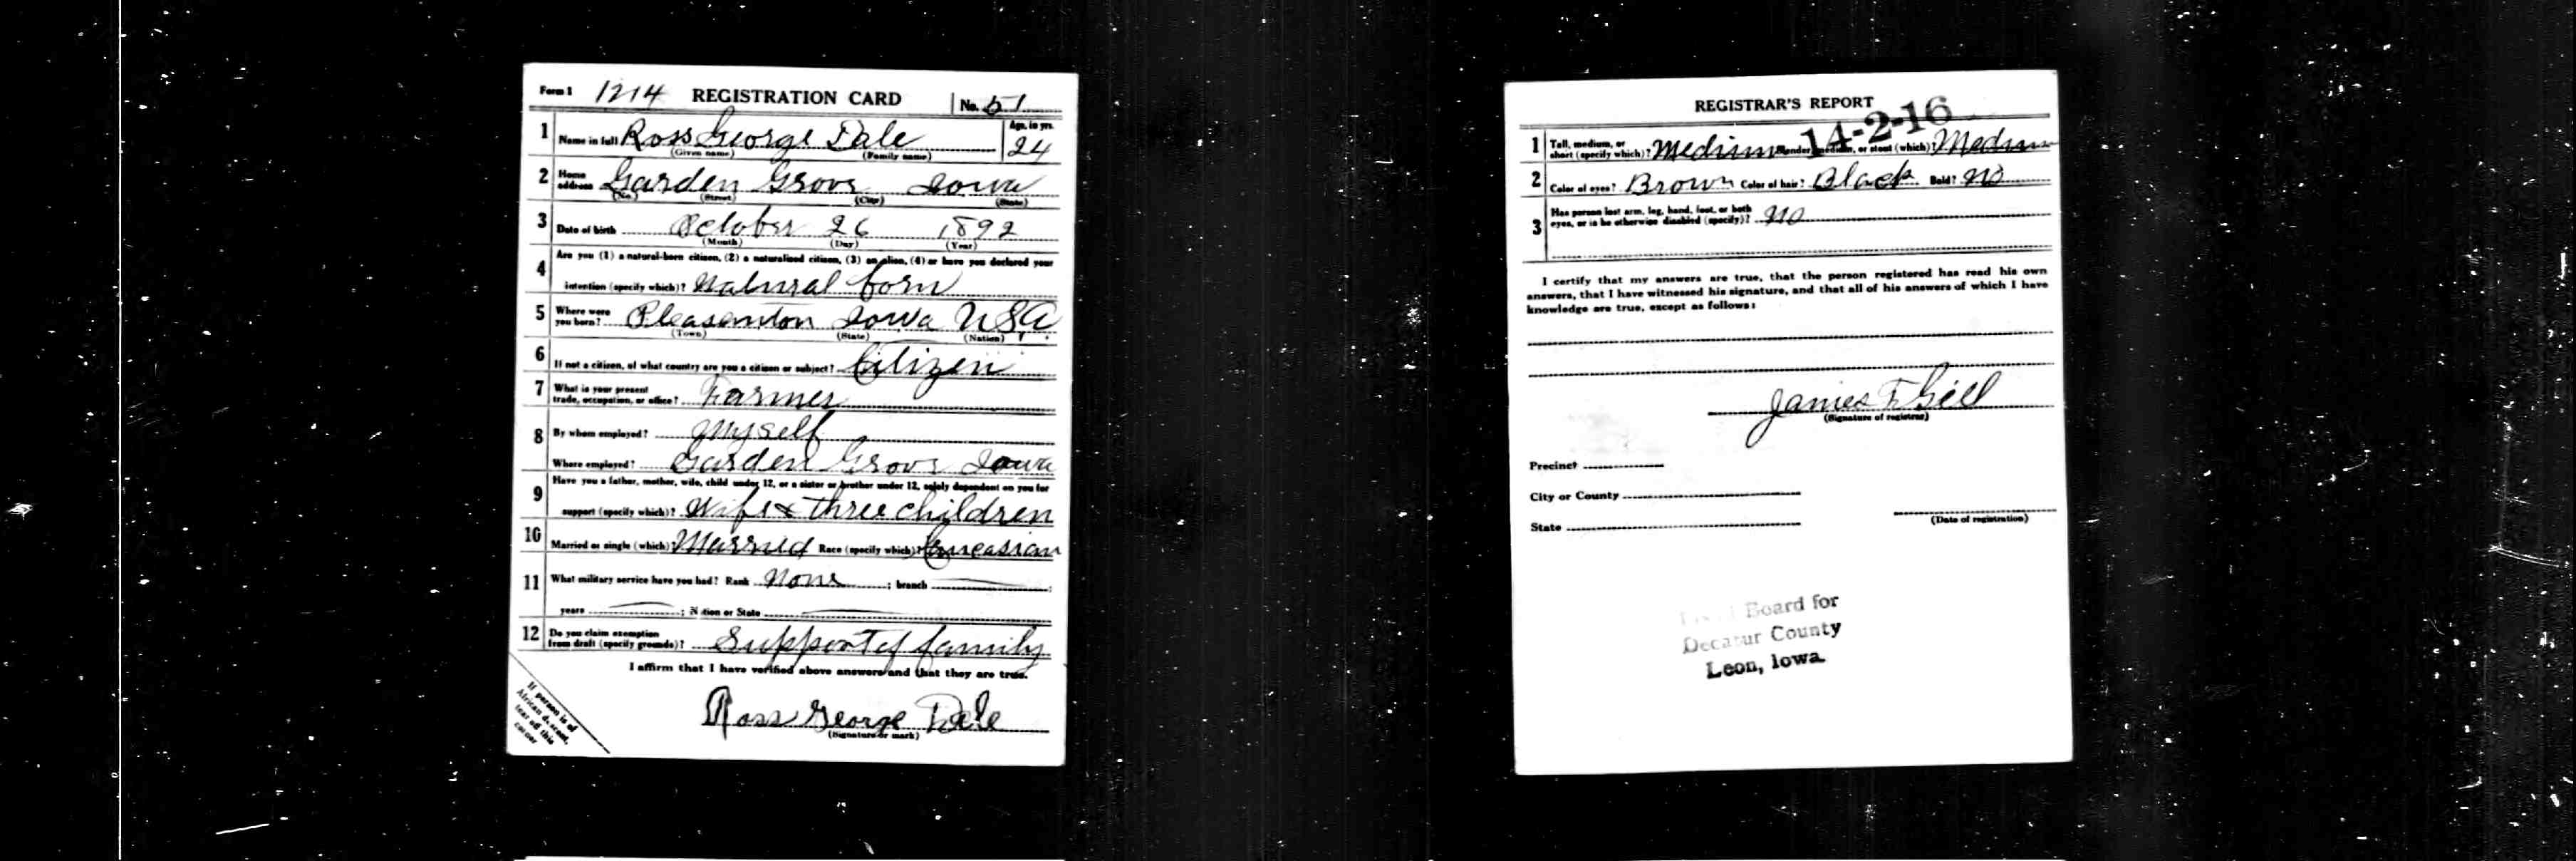 Form 1 1214 REGISTRATION CARD No. 51
1 Name in full Ross George Dale Age, in yrs. 24
(Given name) (Family name)
2 Home address Garden Grove Iowa
(No.) (Street) (City) (State)
3 Date of birth October 26 1892
(Month) (Day) (Year)
4 Are you (1) a natural-born citizen, (2) a naturalized citizen, (3) an alien, (4) or have you declared your
intention (specify which)? Natural born
5 Where were you born? Pleasanton Iowa USA
(Town) (State) (Nation)
6 If not a citizen, of what country are you a citizen or subject? Citizen
7 What is your present trade, occupation, or office? Farmer
8 By whom employed? Myself
Where employed? Garden Grove Iowa
9 Have you a father, mother, wife, child under 12, or a sister or brother under 12, solely dependent on you for
support (specify which)? Wife & three children
10 Married or single (which)? Married Race (specify which)? Caucasian
11 What military service have you had? Rank None ; branch ;
years ; Nation or State
12 Do you claim exemption from draft (specify grounds)? Support of family
I affirm that I have verified above answers and that they are true.
Ross George Dale
(Signature or mark)
If person is of
African descent,
tear off this
corner
REGISTRAR'S REPORT
14-2-16
1 Tall, medium, or short (specify which)? Medium Slender, medium, or stout (which)? Medium
2 Color of eyes? Brown Color of hair? Black Bald? No
3 Has person lost arm, leg, hand, foot, or both eyes, or is he otherwise disabled (specify)? No
I certify that my answers are true, that the person registered has read his own
answers, that I have witnessed his signature, and that all of his answers of which I have
knowledge are true, except as follows:
James F Gill
(Signature of registrar)
Precinct
City or County
State
(Date of registration)
Local Board for
Decatur County
Leon, Iowa.